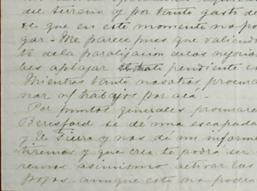 del terreno y por tanto gasto de
se que en este momento no po
gar. Me parece pues que valiendo
te de la paralizacion de los negocios
bes aplazar pendiente
Mientras tanto nosotros procura
nar tus trabajos por acá.
Por puntos generales, procurare
Beresford se dé una escapada
Tierra y nos dé sus inform
Firemos y que cree te podra ser
remos asimismo activar las
aunque esto no podra